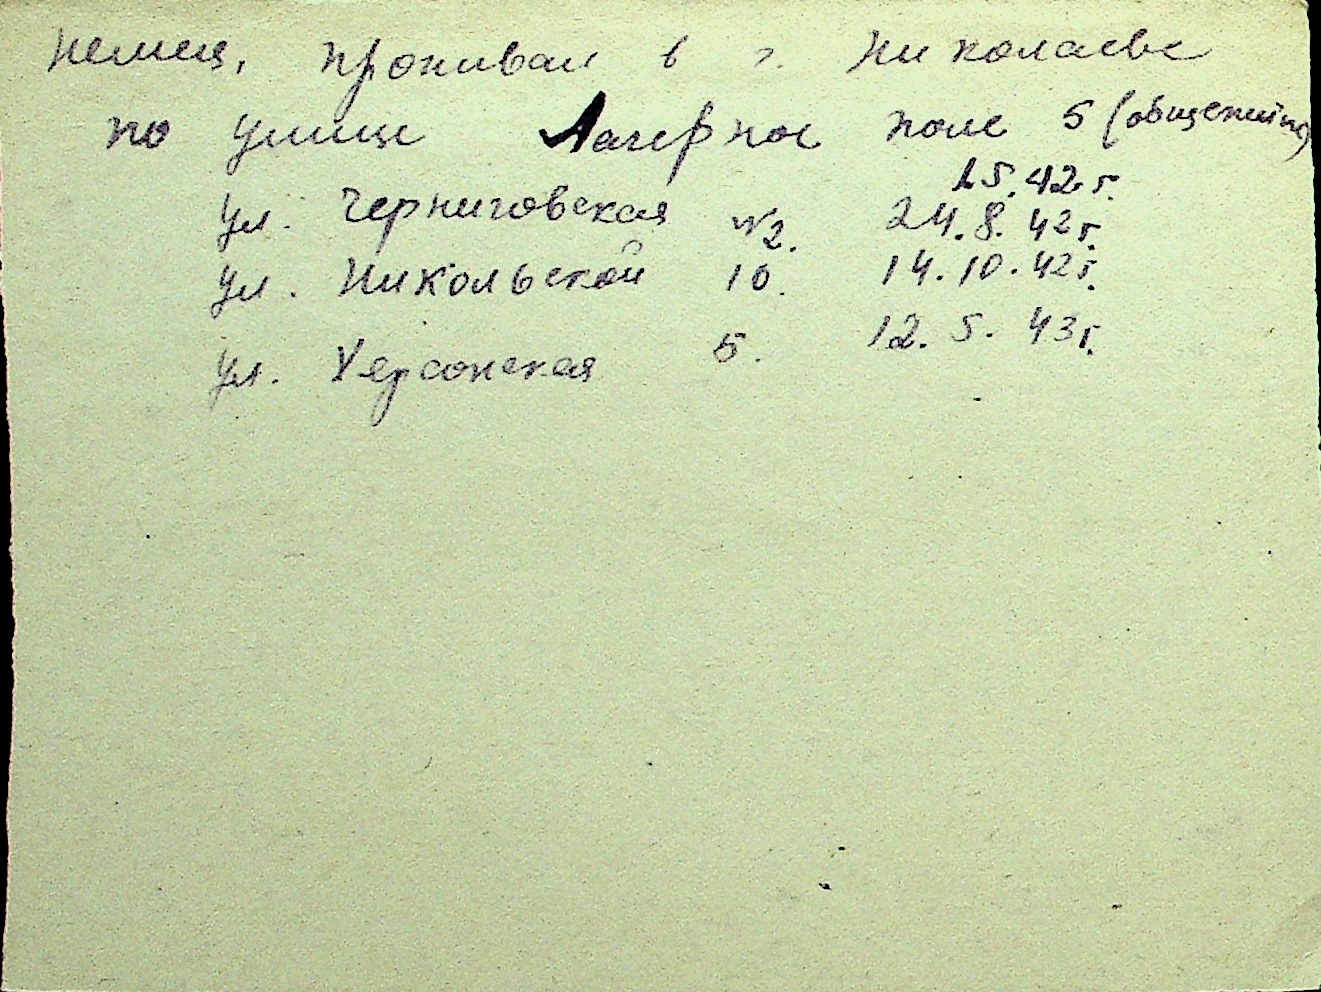 немец, проживал в г. Николаеве
по улице Лагерное поле 5 (общежитие)
1.5.42 г.
ул. Черниговская №2. 24.8.42 г.
ул. Никольской 10. 14.10.42 г.
ул. Херсонская 5. 12.5.43 г.